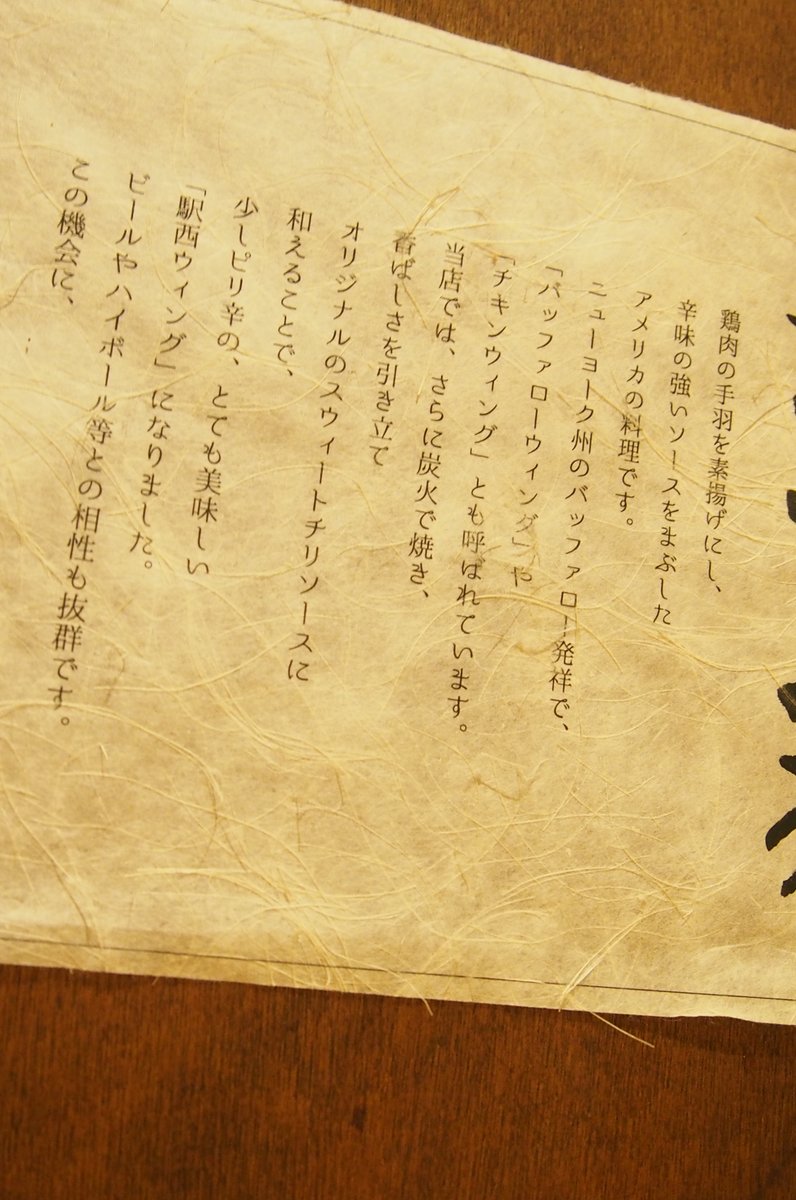 鶏肉の手羽を素揚げにし、
辛味の強いソースをまぶした
アメリカの料理です。
ニューヨーク州のバッファロー発祥で、
「バッファローウィング」や
「チキンウィング」とも呼ばれています。
当店では、さらに炭火で焼き、
香ばしさを引き立て
オリジナルのスウィートチリソースに
和えることで、
少しピリ辛の、とても美味しい
「駅西ウィング」になりました。
ビールやハイボール等との相性も抜群です。
この機会に、